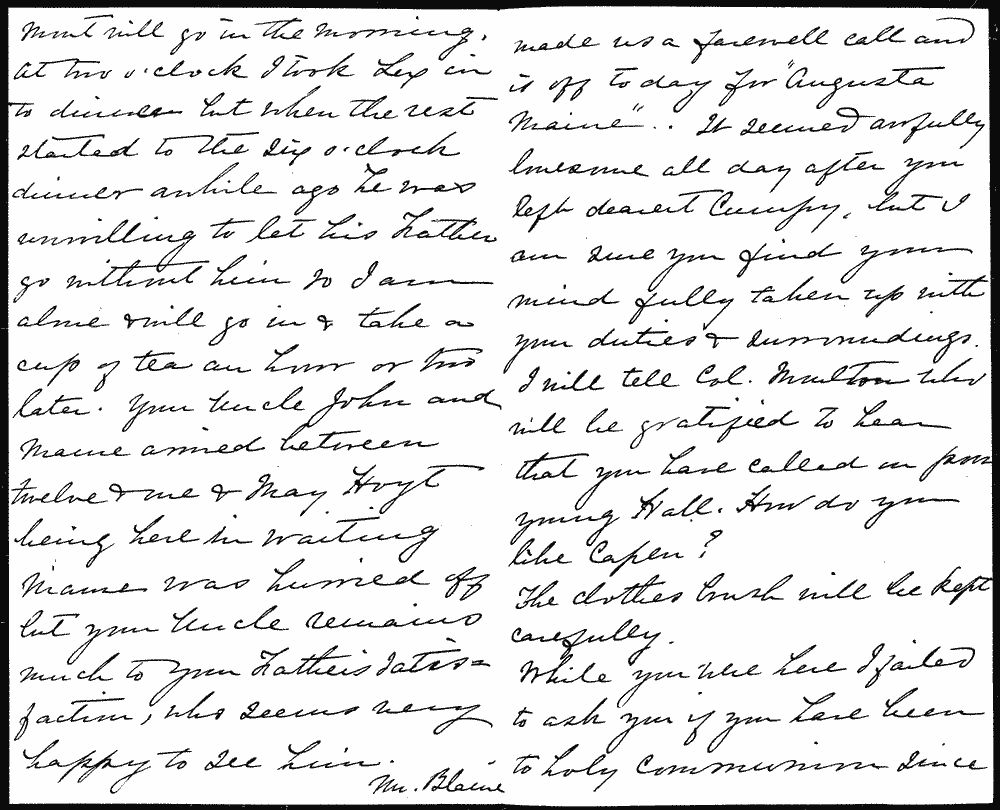 must will go in the morning.
At two o'clock I took Lex in
to dinner but when the rest
started to the six o'clock
dinner awhile ago he was
unwilling to let his Father
go without him so I am
alone & will go in & take a
cup of tea an hour or two
later. Your Uncle John and
Mame arrived between
twelve & one & May Hoyt
being here in waiting
Mame was hurried off
but your Uncle remains
much to your Father's satis=
faction, who seems very
happy to see him.
Mr. Blaine
made us a farewell call and
is off to day for "Augusta
Maine".. It seemed awfully
lonesome all day after you
left dearest Cumpy, but I
am sure you find your
mind fully taken up with
your duties & surroundings.
I will tell Col. Moulton who
will be gratified to hear
that you have called on poor
young Hall. How do you
like Capen?
The clothes brush will be kept
carefully.
While you were here I failed
to ask you if you have been
to holy Communion since